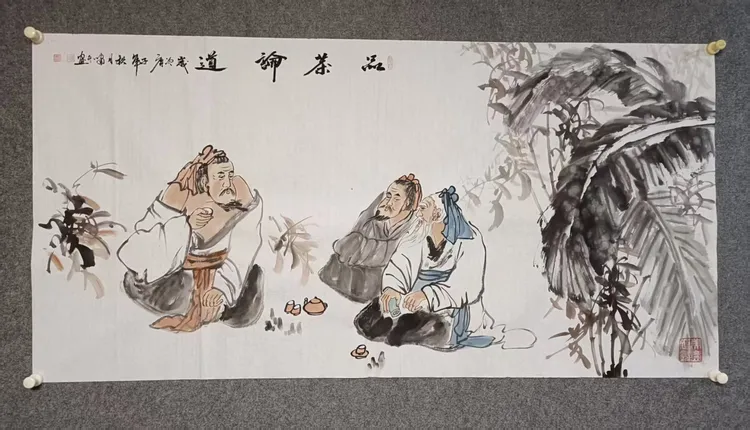 品茶論道 歲次庚子年秋月 畫